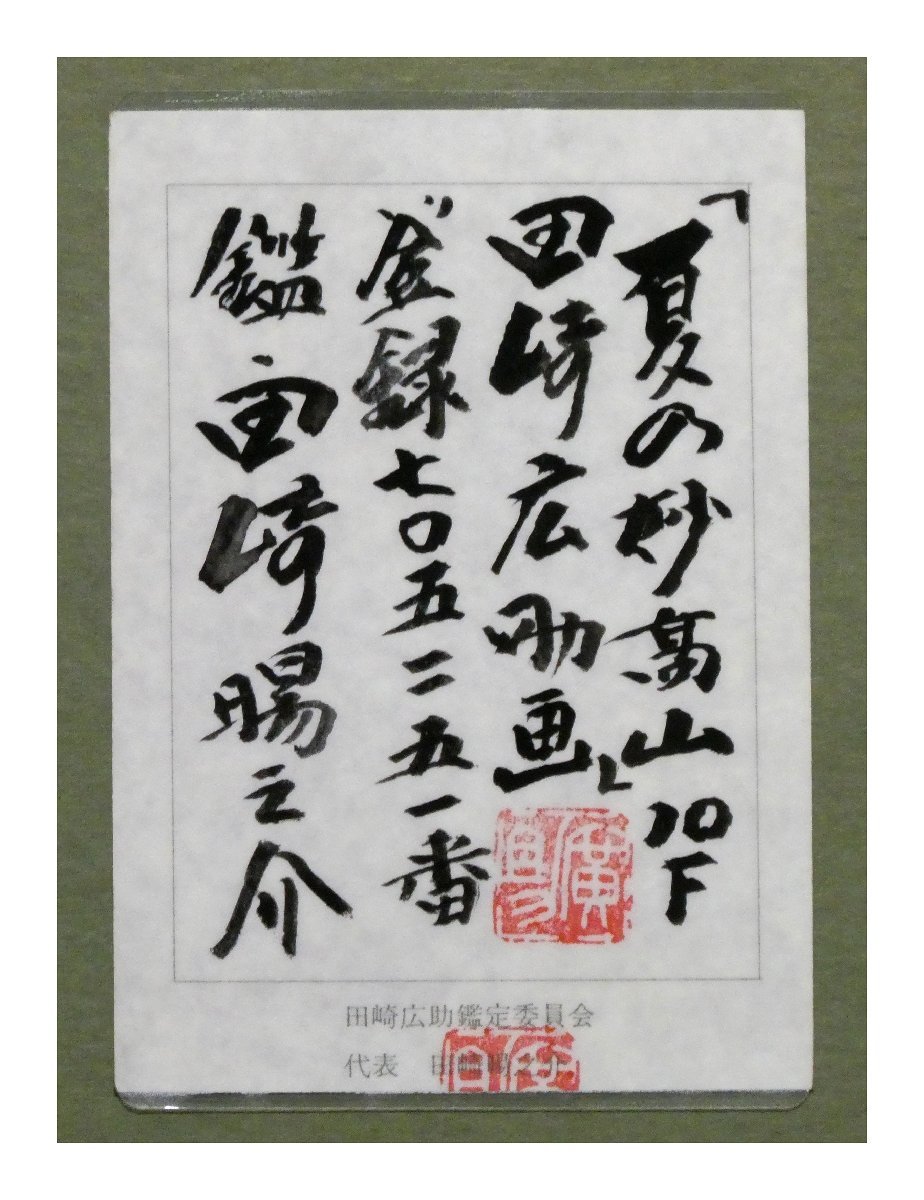 「夏の妙高山10F
田崎広助画」
登録七〇五二五一番
鑑 田崎暘之介
田崎広助鑑定委員会
代表 田崎暘之介